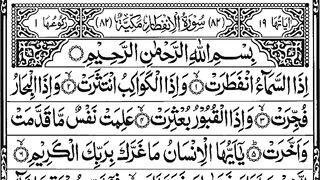 اٰیَاتُهَا ١٩ (٨٢) سُوْرَةُ الْاِنْفِطَارِ مَكِّيَّةٌ (٨٢) رُكُوْعُهَا ١
بِسْمِ اللّٰهِ الرَّحْمٰنِ الرَّحِيْمِ
اِذَا السَّمَآءُ انْفَطَرَتْ ١ وَاِذَا الْكَوَاكِبُ انْتَثَرَتْ ٢ وَاِذَا الْبِحَارُ
فُجِّرَتْ ٣ وَاِذَا الْقُبُوْرُ بُعْثِرَتْ ٤ عَلِمَتْ نَفْسٌ مَّا قَدَّمَتْ
وَاَخَّرَتْ ٥ يٰٓاَيُّهَا الْاِنْسَانُ مَا غَرَّكَ بِرَبِّكَ الْكَرِيْمِ ٦